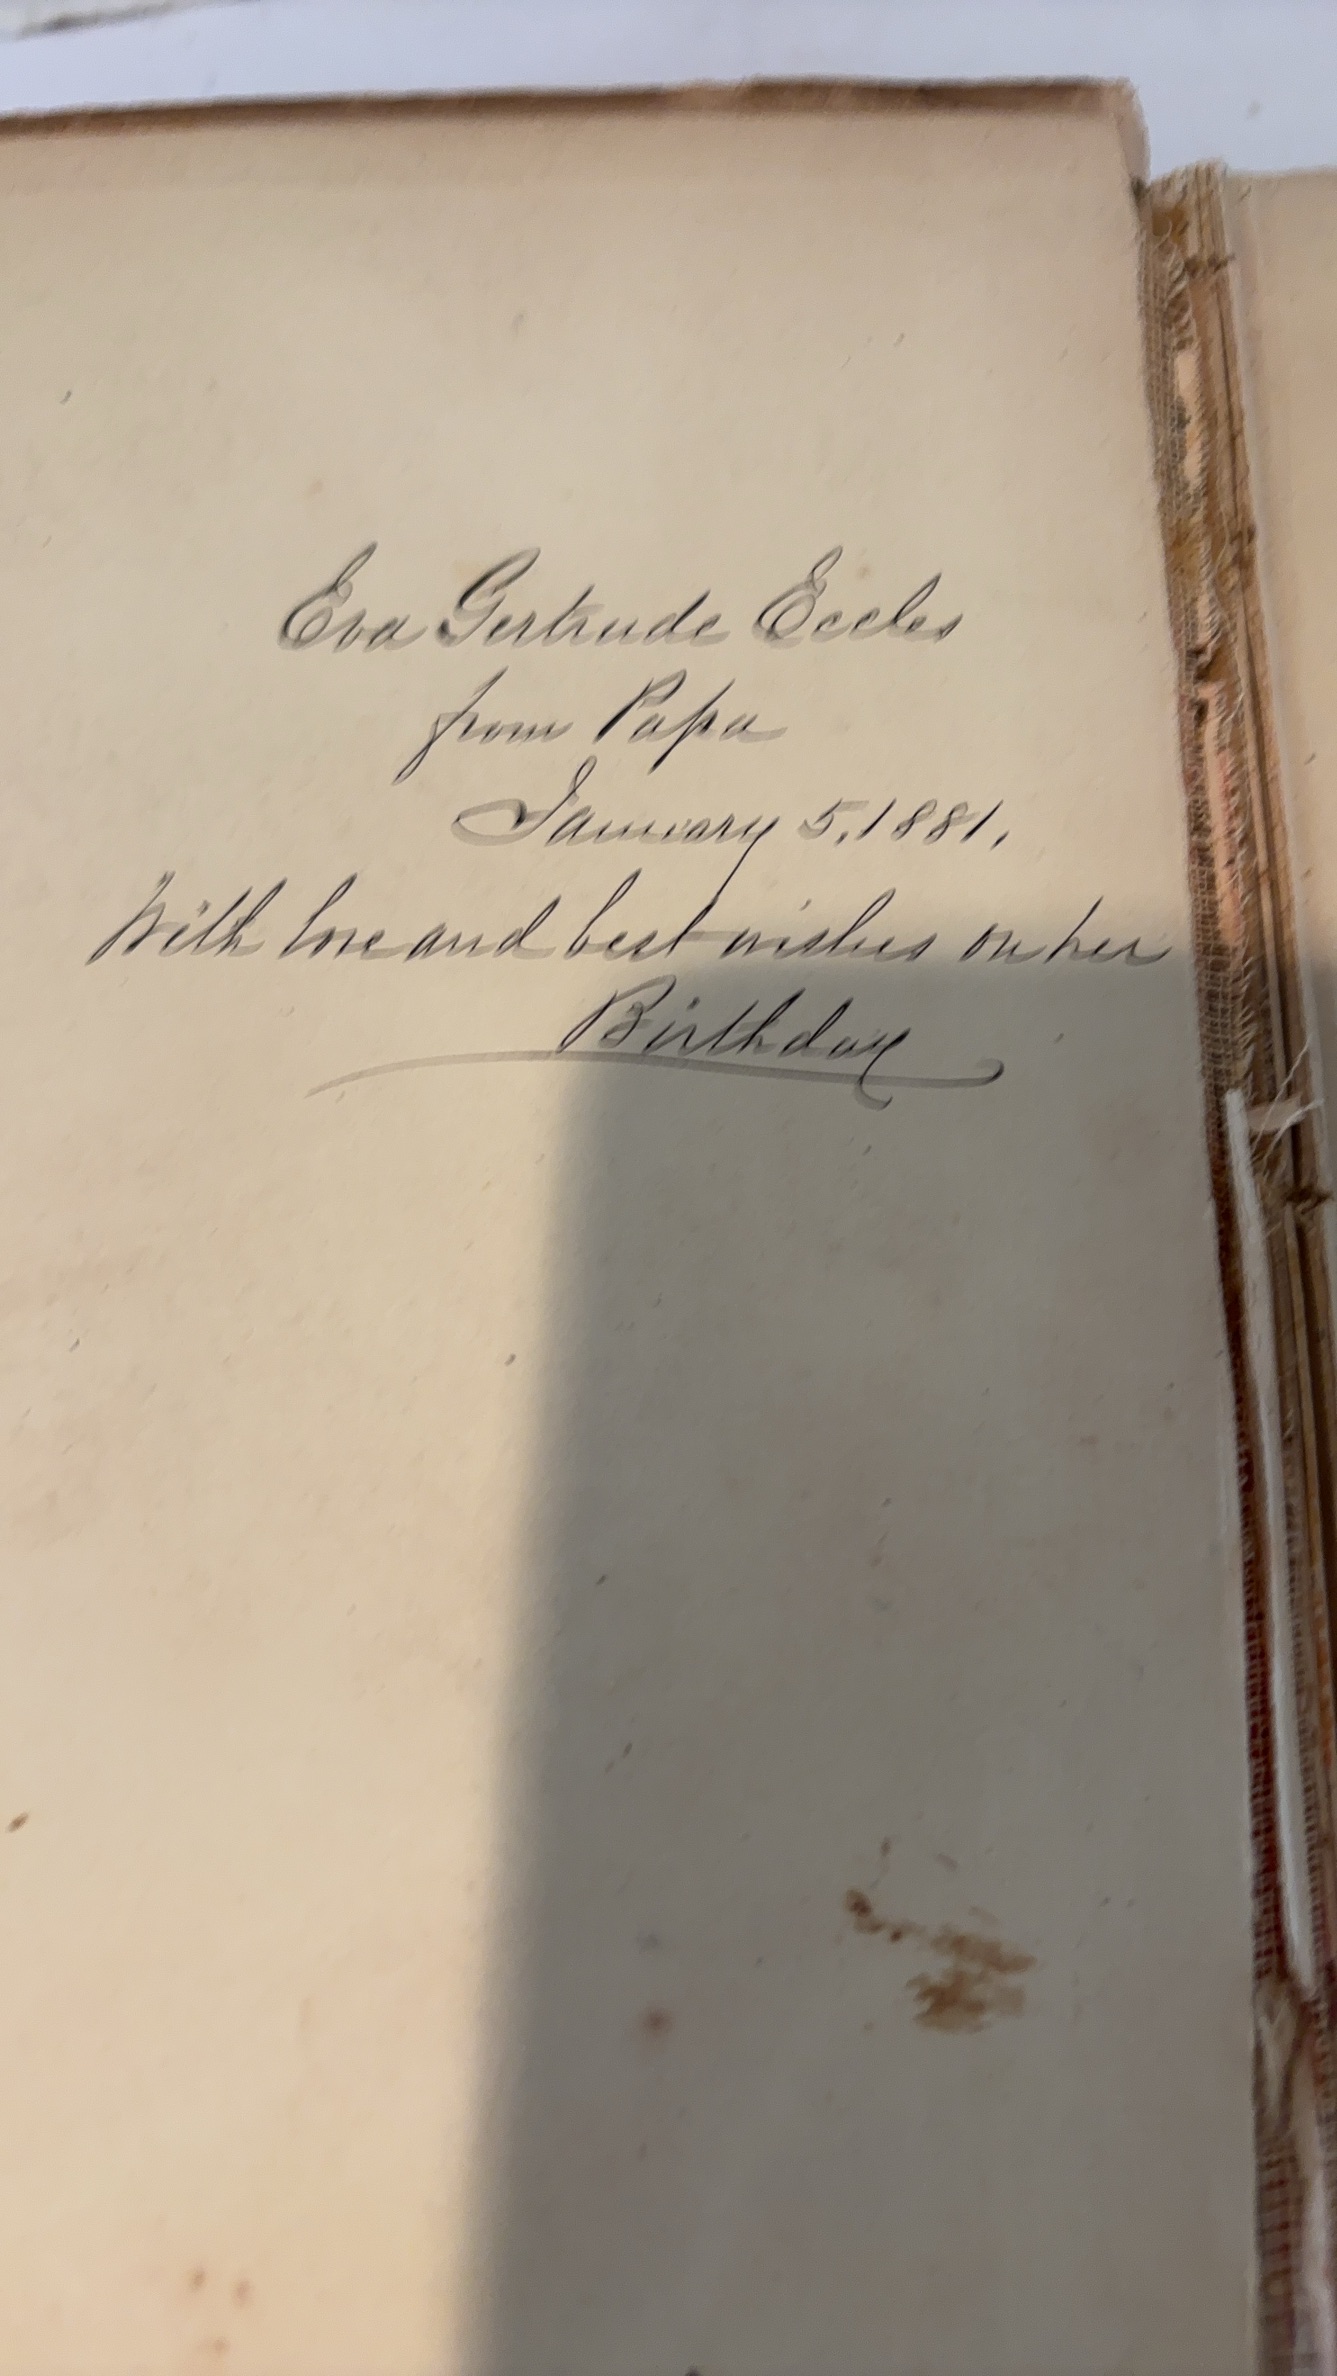 Eva Gertrude Eccles
from Papa
January 5, 1881.
With love and best wishes on her
Birthday